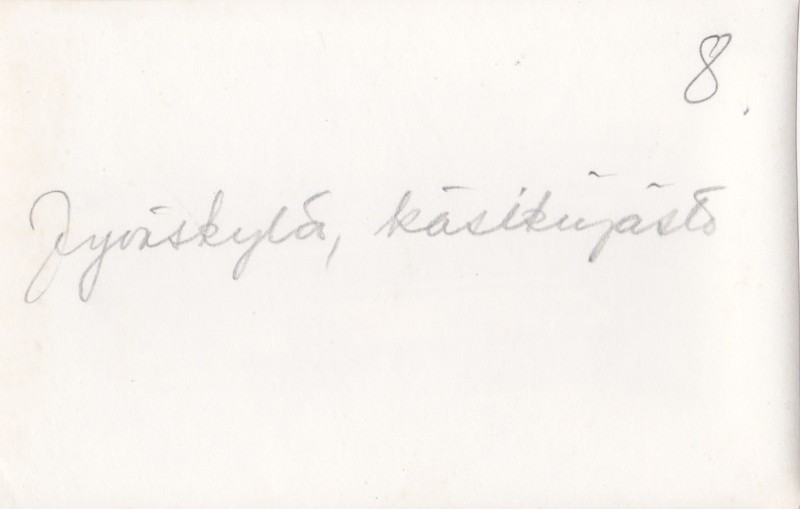 8.
Jyväskylä, käsikirjasto